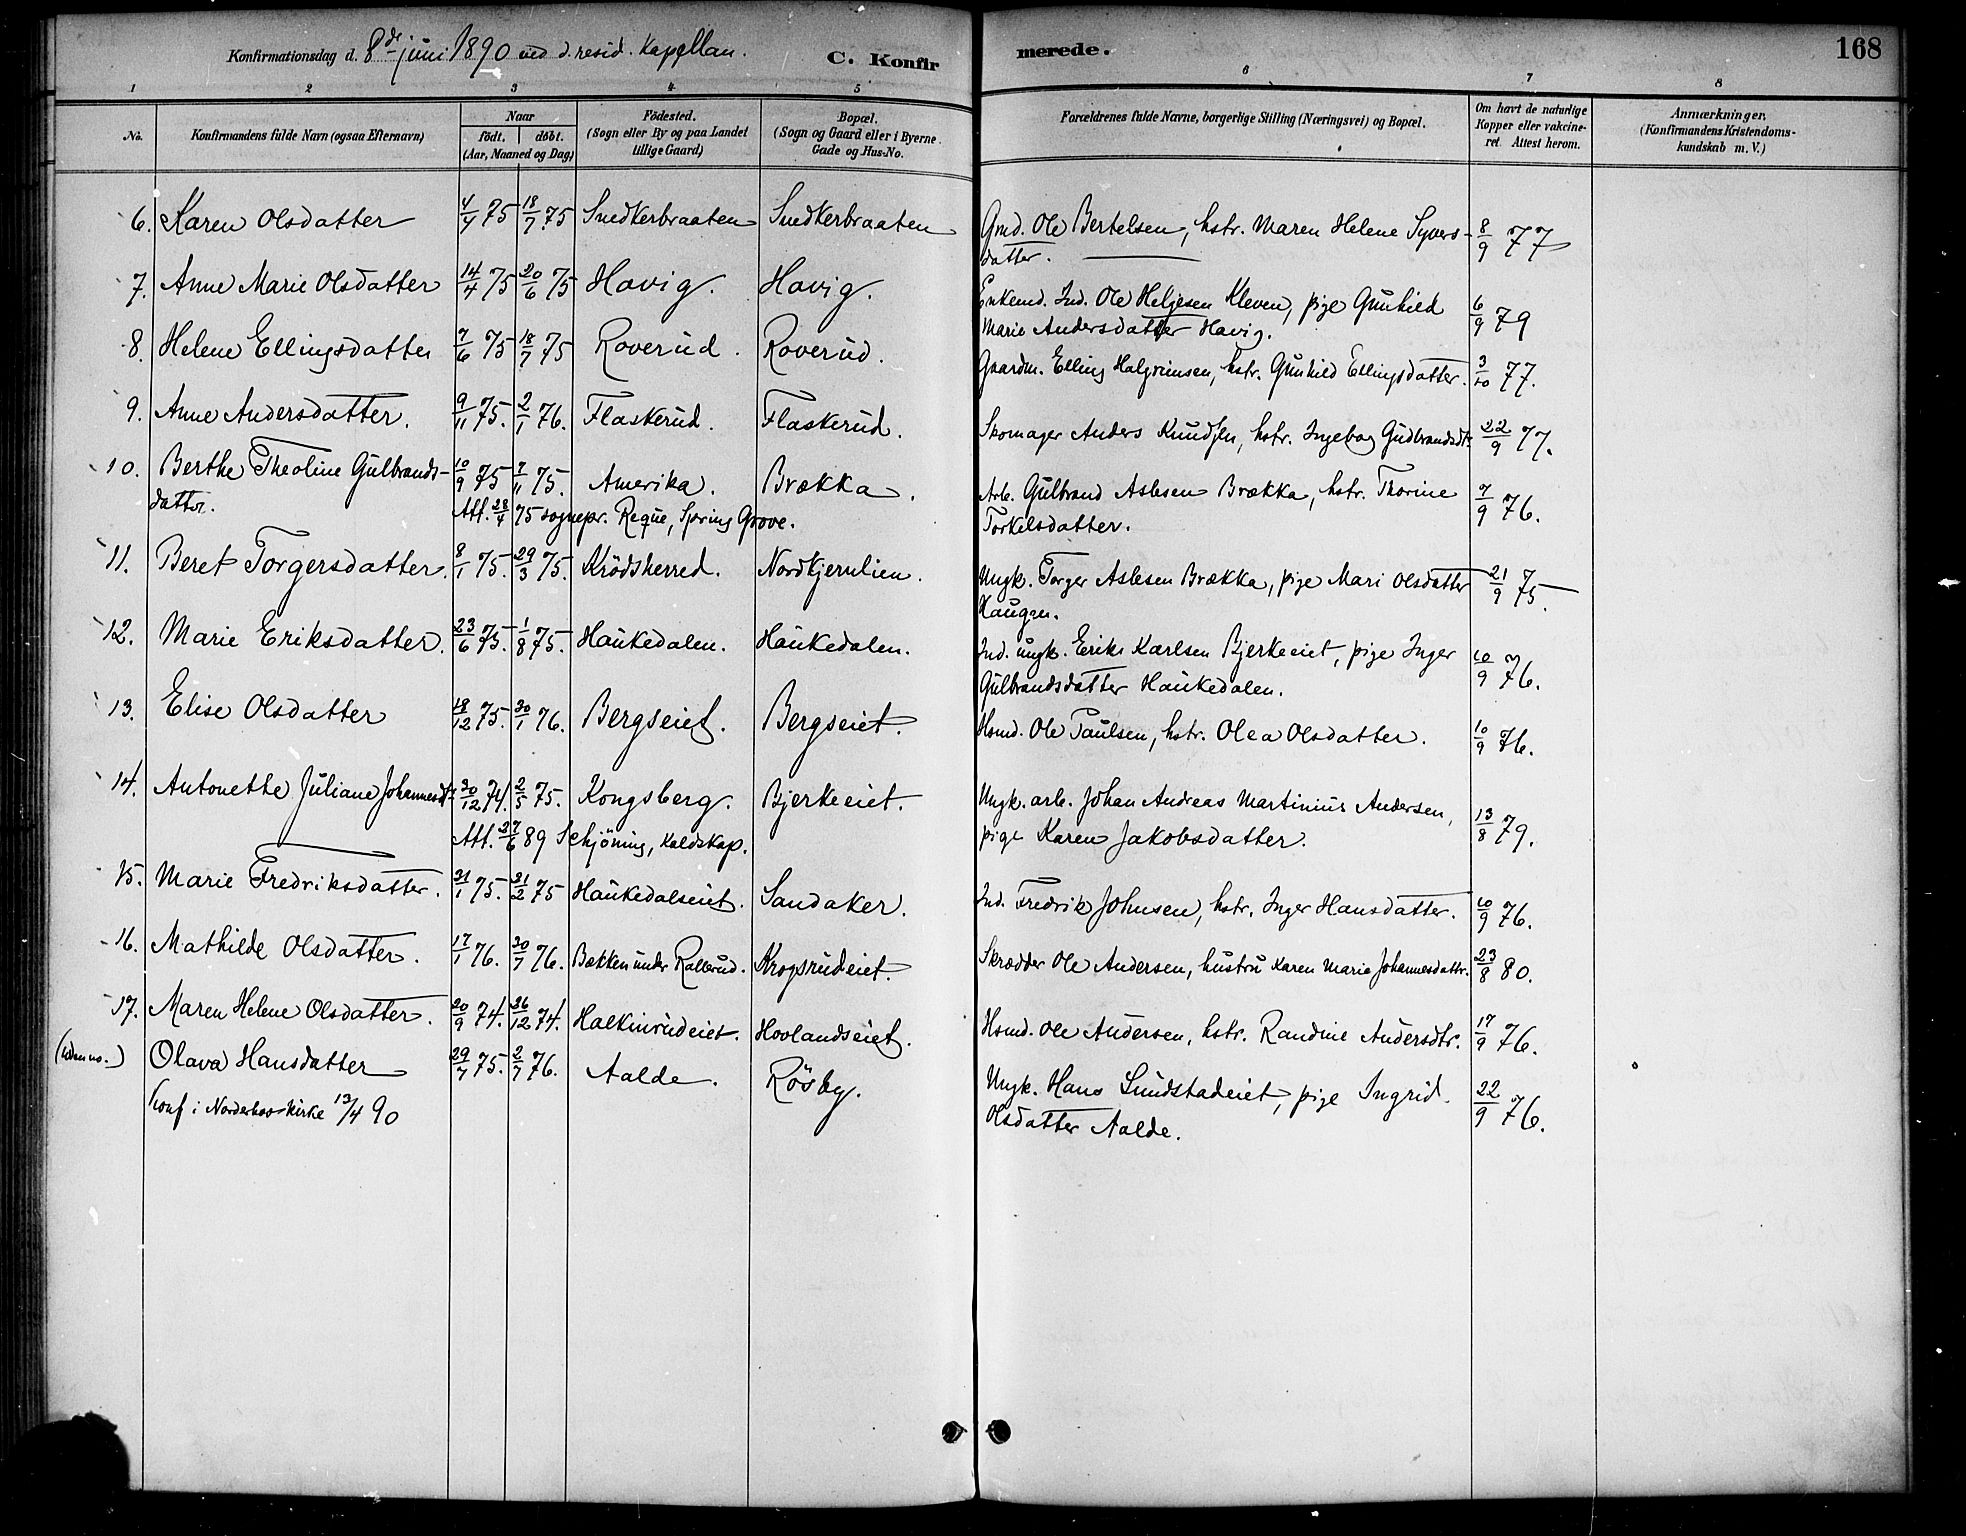 Konfirmationsdag d. 8de juni 1890 ved d. resid. Kapellan.
C. Konfirmerede.
168
1 2 3 4 5 6 7 8
No. Konfirmandens fulde Navn (ogsaa Efternavn) Naar födt. döbt. (Aar, Maaned og Dag) Födested. (Sogn eller By og paa Landet tillige Gaard) Bopæl. (Sogn og Gaard eller i Byerne Gade og Hus-No. Forældrenes fulde Navne, borgerlige Stilling (Næringsvei) og Bopæl. Om havt de naturlige Kopper eller vakcineret. Attest herom. Anmærkninger. (Konfirmandens Kristendomskundskab m. V.)
6. Karen Olsdatter 4/4 75 18/7 75 Snedkerbraaten Snedkerbraaten Gmd. Ole Bertelsen, hstr. Maren Helene Syvers- 8/9 77
datter.
7. Anne Marie Olsdatter 14/4 75 20/6 75 Havig. Havig. Enkemd. Ind. Ole Heljesen Kleven, pige Gunhild 6/9 79
Marie Andersdatter Havig.
8. Helene Ellingsdatter 7/6 75 18/7 75 Roverud. Roverud. Gaardm. Elling Halgrimsen, hstr. Gunhild Ellingsdatter. 3/10 77.
9. Anne Andersdatter. 9/11 75. 2/1 76. Flaskerud. Flaskerud. Skomager Anders Knudsen, hstr. Ingeborg Gudbrandsdtr 22/9 77.
10. Berthe Theoline Gulbrands- 10/9 75 7/11 75. Amerika. Brækka. Arb. Gulbrand Aslesen Brækka, hstr. Thorine 7/9 76.
datter. Att. 28/4 75 sognepr. Reque, Spring Grove. Torkelsdatter.
11. Beret Torgersdatter. 8/1 75. 29/3 75. Krödsherred. Nordkjernlien. Ungk. Torger Aslesen Brækka, pige Mari Olsdatter 21/9 75.
Haugen.
12. Marie Eriksdatter. 23/6 75. 1/8 75. Haukedalen. Haukedalen. Ind. ungk. Erik Karlsen Bjerkeeiet, pige Inger 10/9 76.
Gulbrandsdatter Haukedalen.
13. Elise Olsdatter 18/12 75. 30/1 76. Bergseiet. Bergseiet. Hsmd. Ole Paulsen, hstr. Olea Olsdatter. 10/9 76.
14. Antonette Juliane Johannesdtr 30/12 74. 2/5 75. Kongsberg. Bjerkeeiet. Ungk. arb. Johan Andreas Martinius Andersen, 13/8 79.
Att. 27/6 89 Schjöning, Kaldskap. pige Karen Jakobsdatter.
15. Marie Fredriksdatter. 31/1 75. 21/2 75 Haukedalseiet. Sandaker. Ind. Fredrik Johnsen, hstr. Inger Hansdatter. 10/9 76.
16. Mathilde Olsdatter. 17/1 76. 30/7 76. Bækken under Rallerud. Krogsrudeiet. Skrædder Ole Andersen, hustru Karen Marie Johannesdattr. 23/8 80.
17. Maren Helene Olsdatter. 20/9 74. 26/12 74. Halkinrudeiet. Hovlandseiet. Hsmd. Ole Andersen, hstr. Randine Andersdtr. 17/9 76.
(uden no.) Olava Hansdatter 29/7 75. 2/7 76. Aalde. Rösby. Ungk. Hans Lundstadeiet, pige Ingrid 22/9 76.
Konf i Norderhov kirke 13/4 90 Olsdatter Aalde.